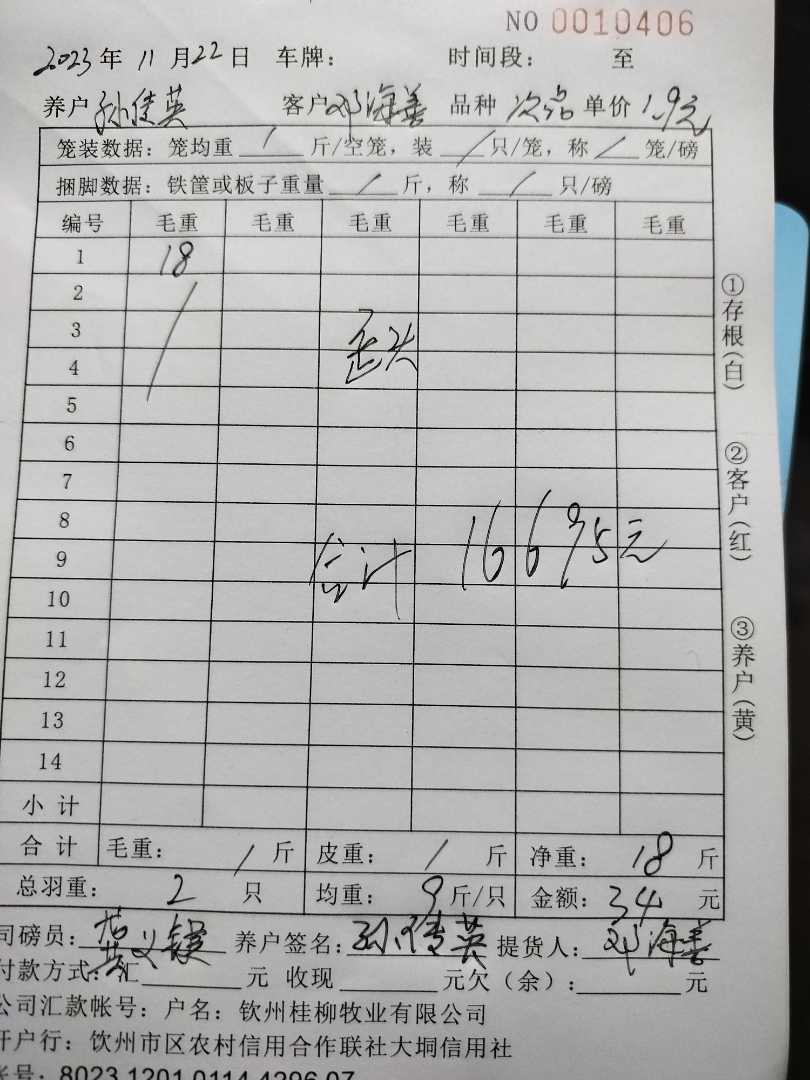 NO 0010406
2023年 11月22日 车牌： 时间段： 至
养户 孙佳英 客户 邓海善 品种 次品 单价 1.9元
笼装数据：笼均重 / 斤/空笼，装 / 只/笼，称 / 笼/磅
捆脚数据：铁筐或板子重量 / 斤，称 / 只/磅
编号 毛重 毛重 毛重 毛重 毛重 毛重
1 18
2
3
4
5
6
7
8
9
合计 16695元
10
11
12
13
14
小计
合计 毛重： / 斤 皮重： / 斤 净重： 18 斤
总羽重： 2 只 均重： 9 斤/只 金额： 34 元
司磅员： 养户签名： 孙佳英 提货人： 邓海善
付款方式：汇 元 收现 元欠（余）： 元
公司汇款帐号：户名：钦州桂柳牧业有限公司
开户行：钦州市区农村信用合作联社大垌信用社
帐号：8023 1201 0114 4296 07
①存根（白）
②客户（红）
③养户（黄）